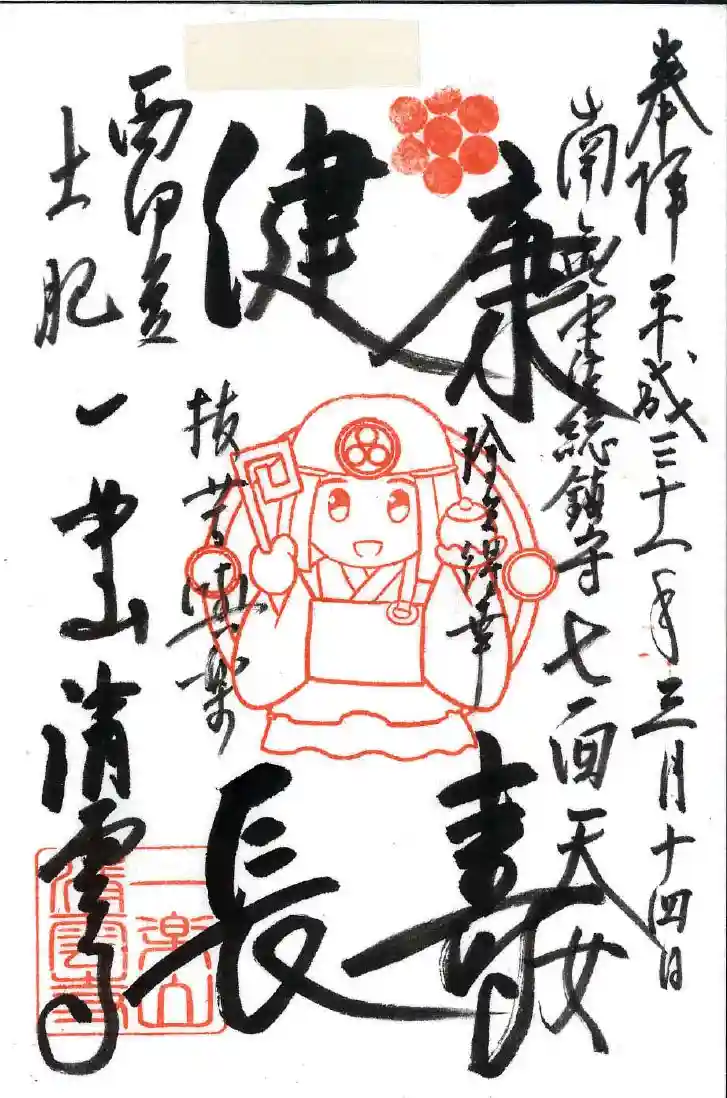 奉拝 平成三十一年三月十四日
南無 総鎮守七面天女
健康
長寿
抜苦與楽
西伊豆
土肥
一楽山 清雲寺
一楽山
清雲寺